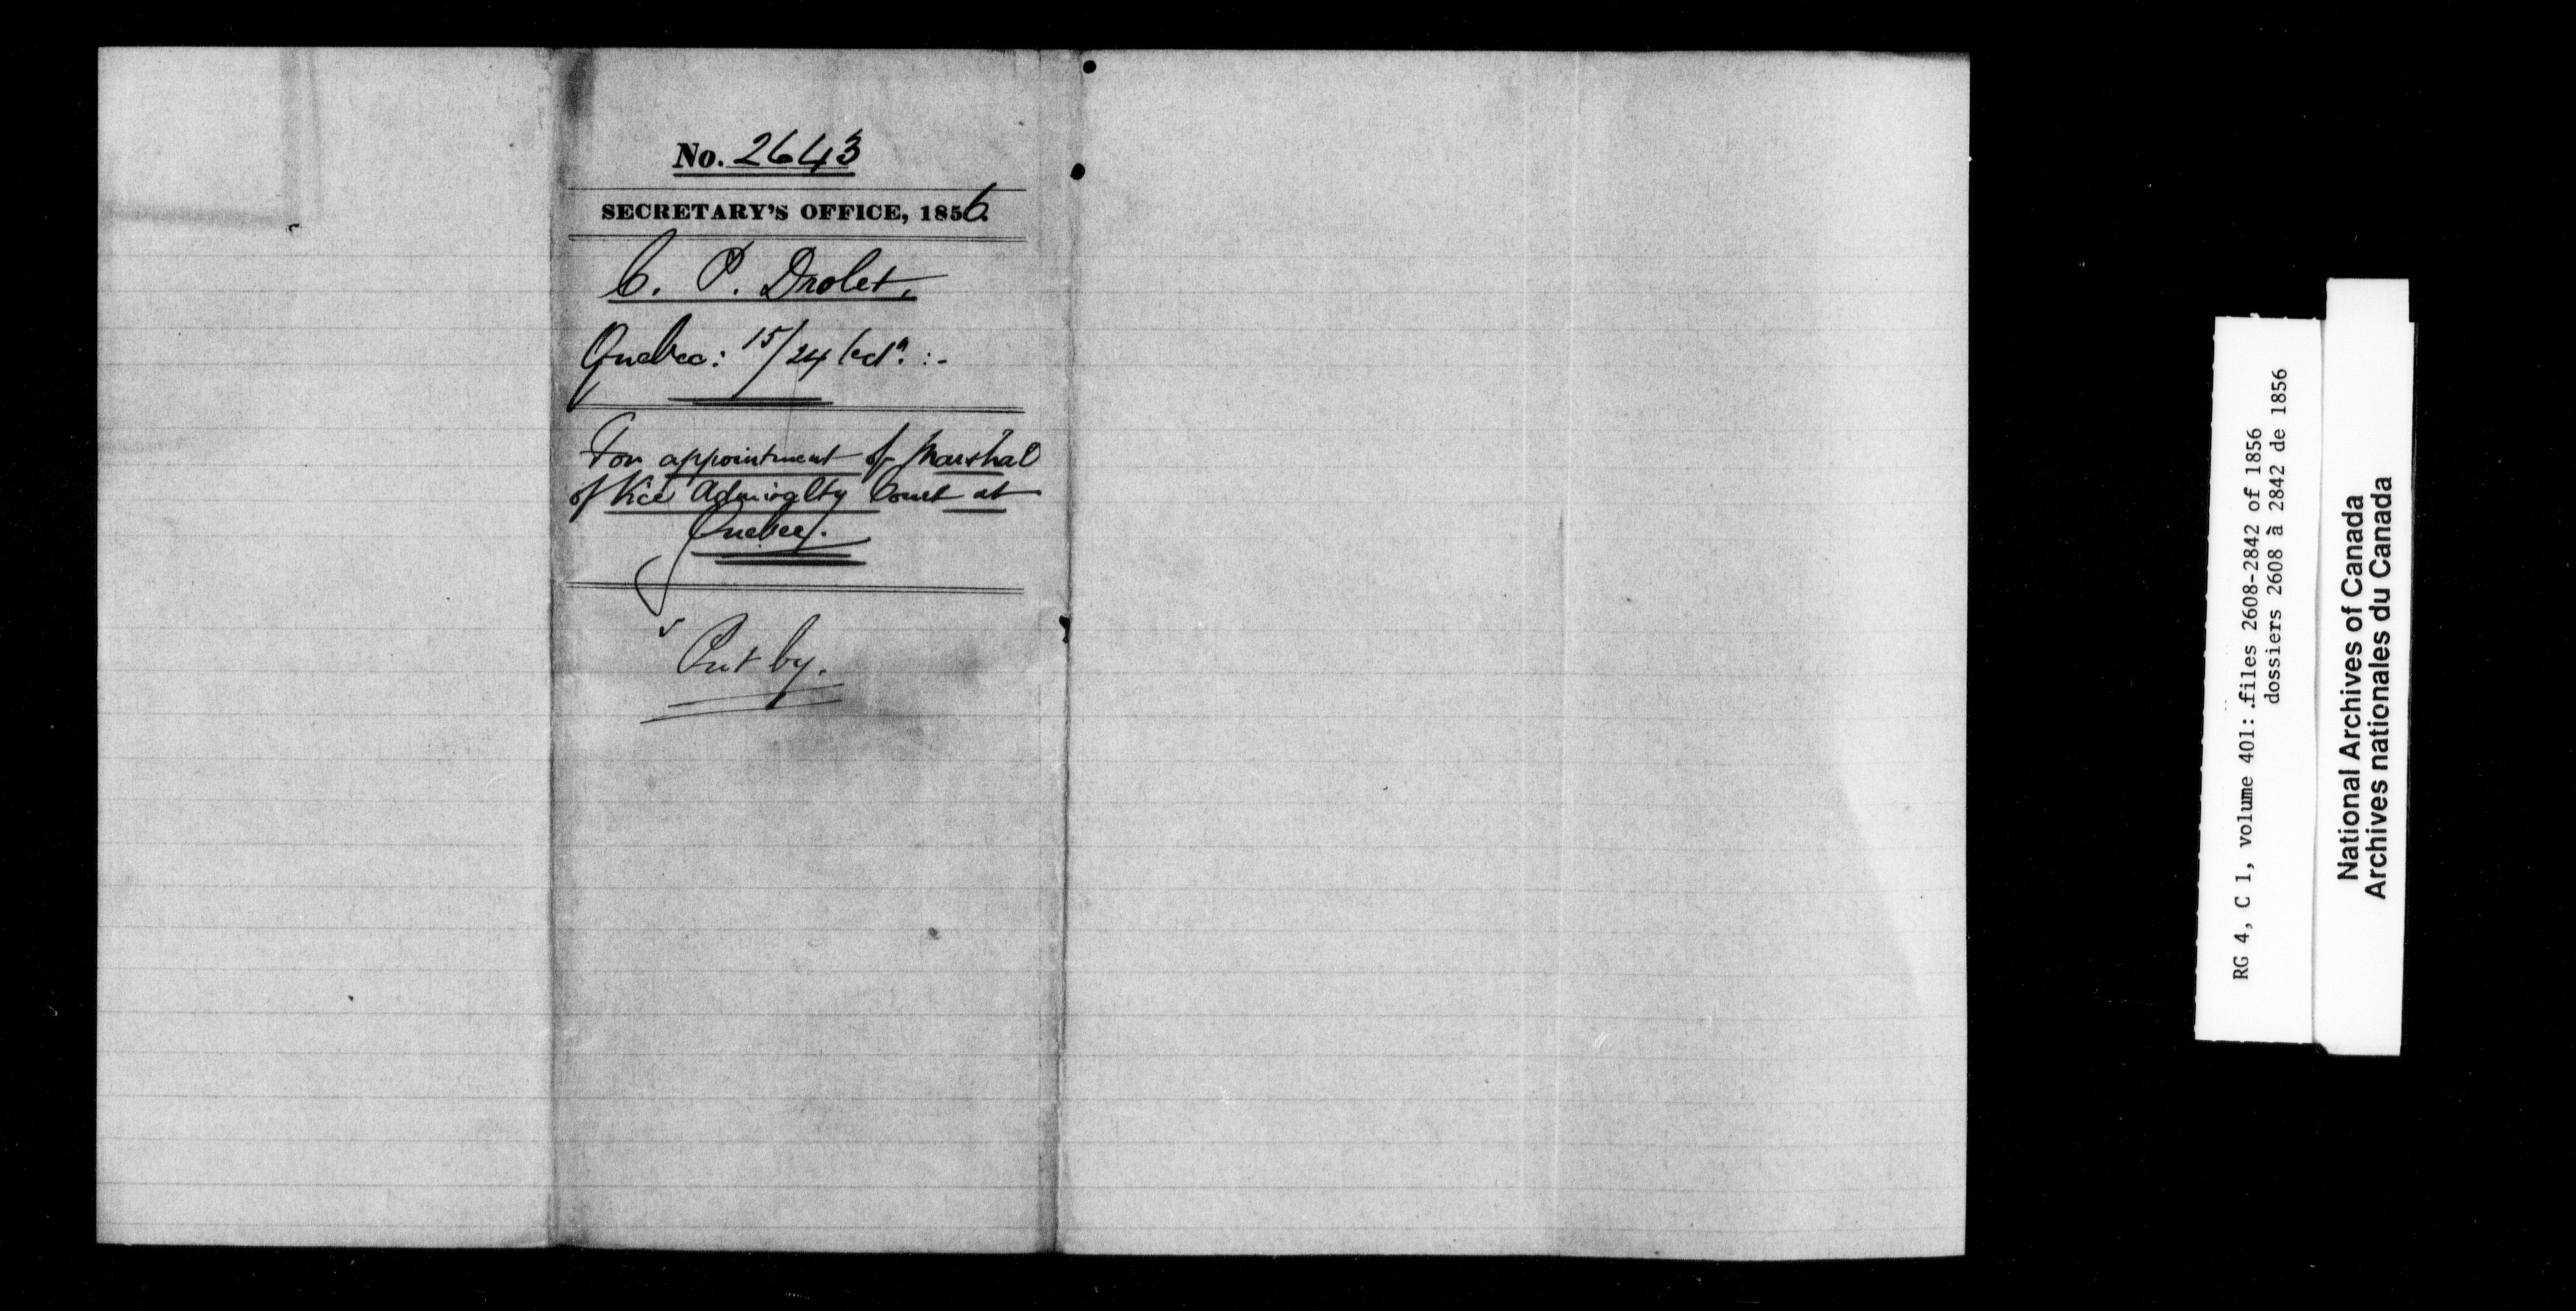 No. 2643
SECRETARY'S OFFICE, 1856.
C. P. Drolet.
Quebec: 15/24
For appointment of Marshal
of Vice Admiralty Court at
Quebec.
Put by.
RG 4, C 1, volume 401: files 2608-2842 of 1856
dossiers 2608 à 2842 de 1856
National Archives of Canada
Archives nationales du Canada